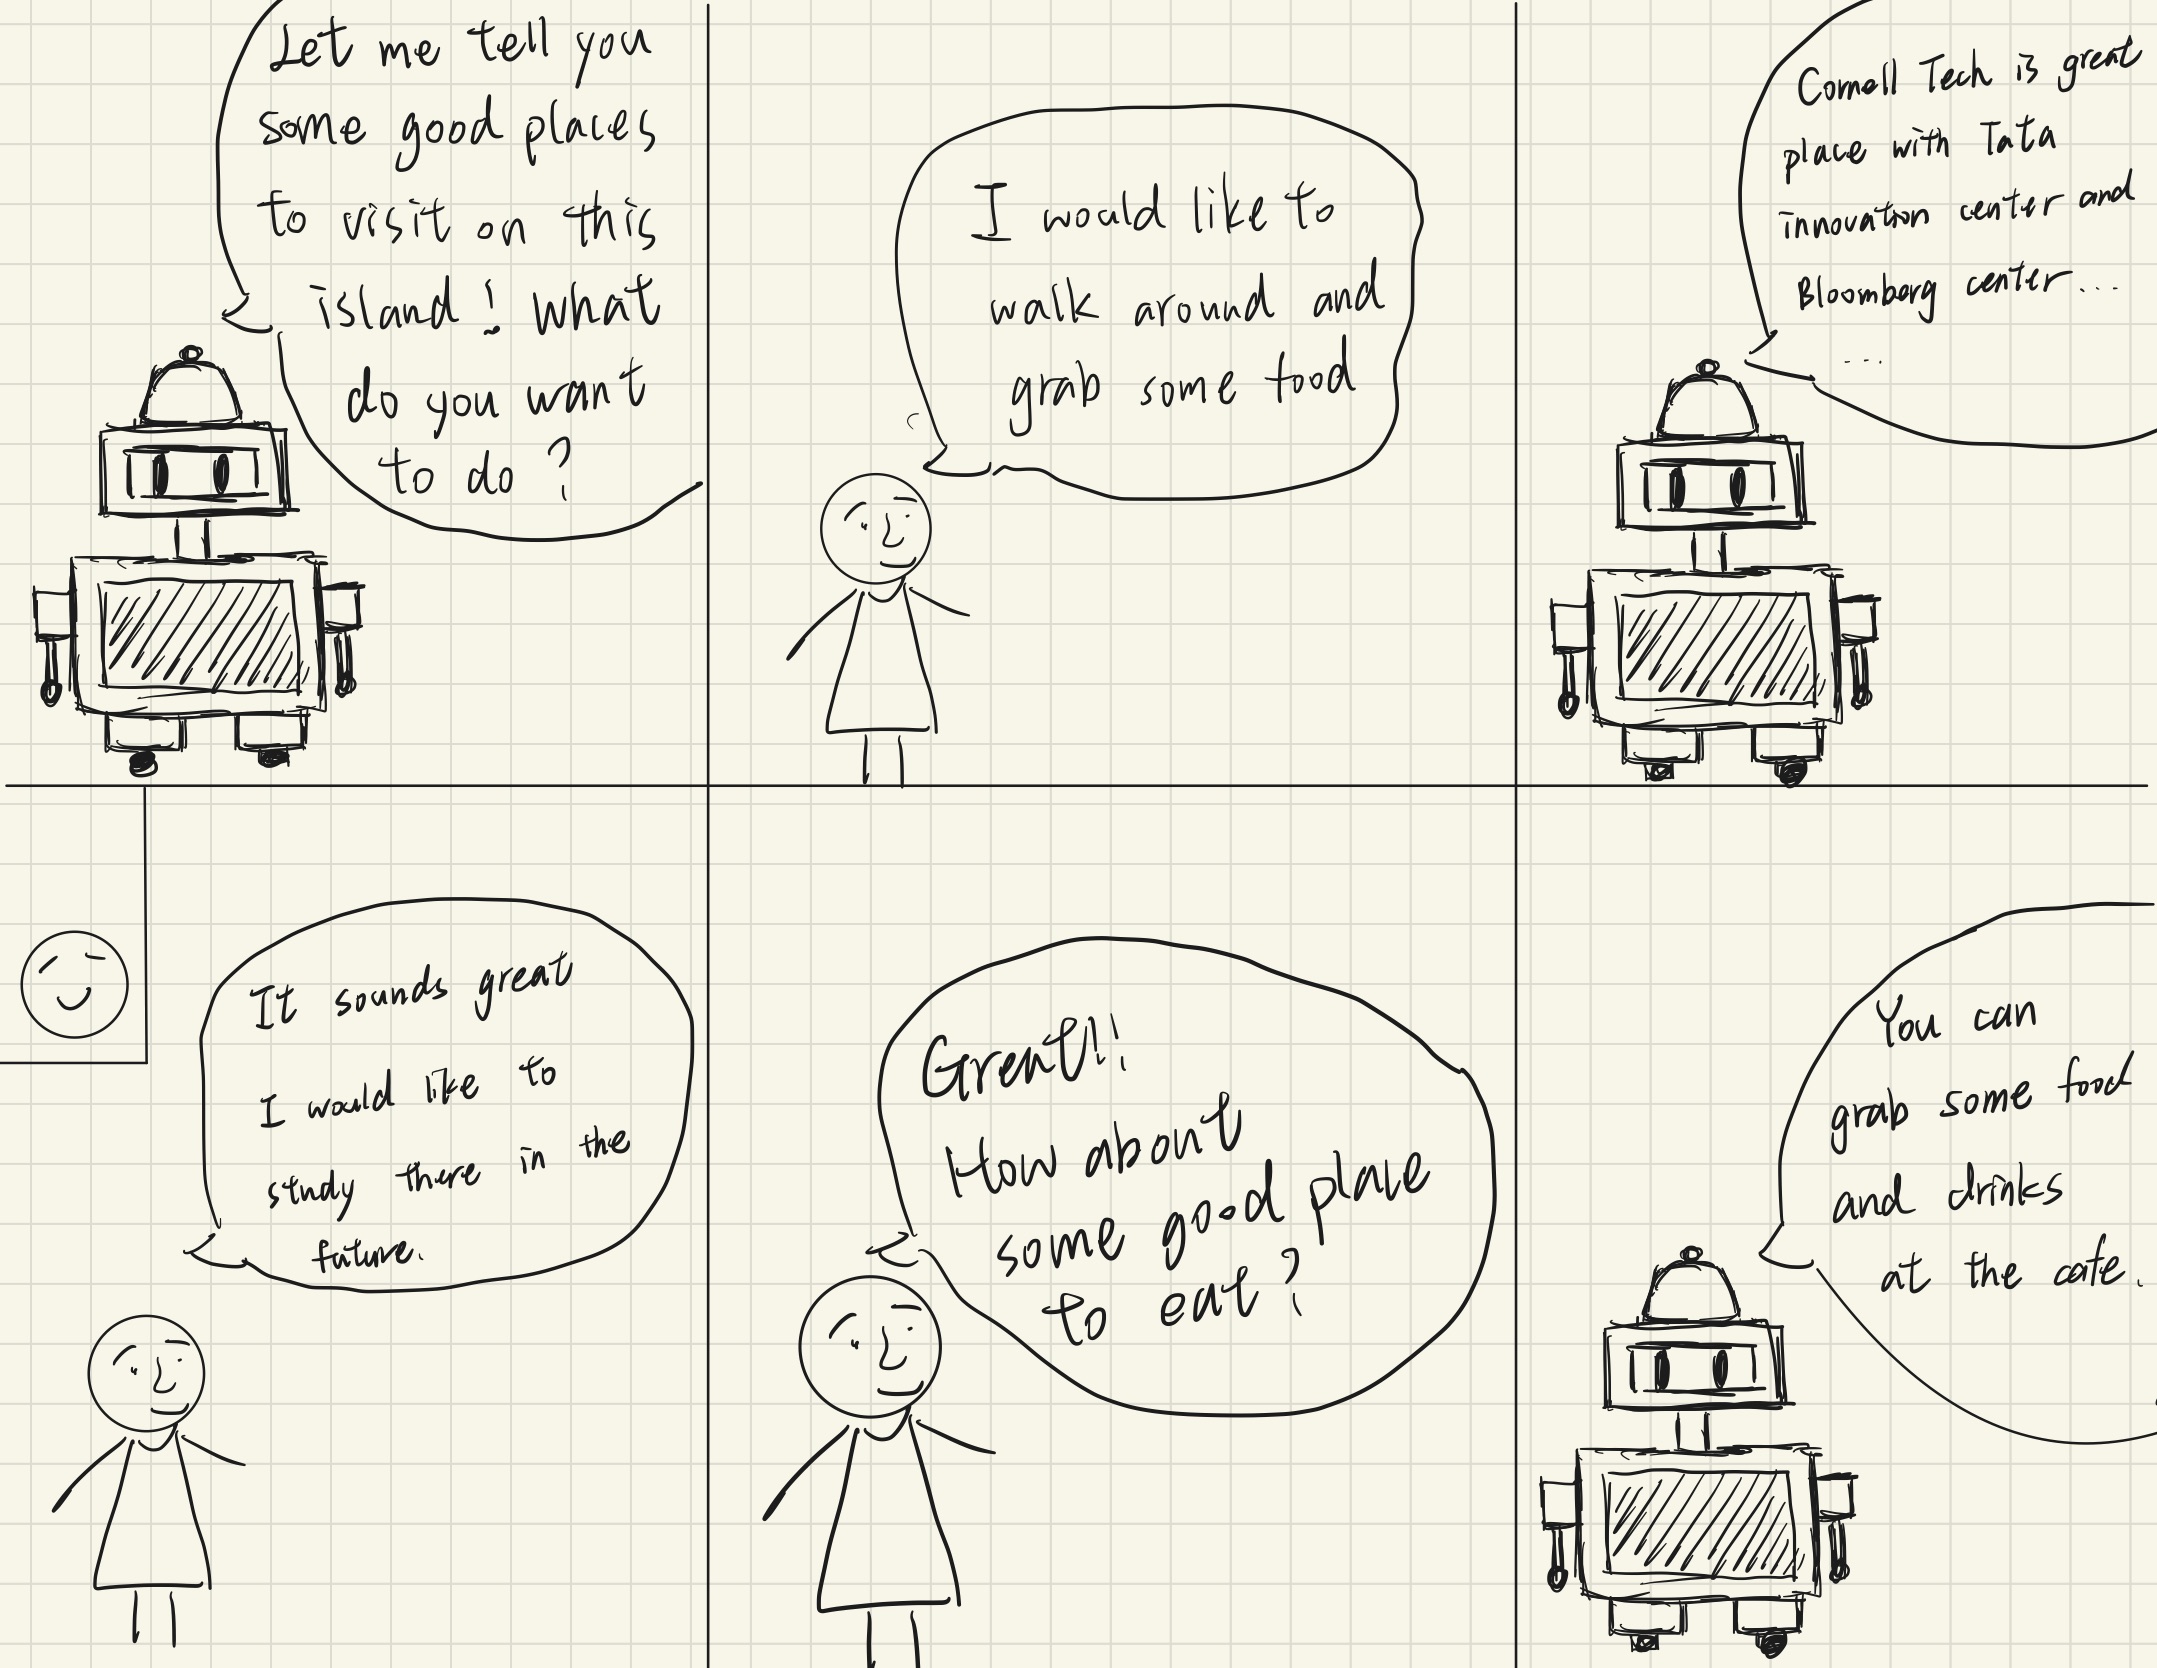 Let me tell you
some good places
to visit on this
island! What
do you want
to do?
I would like to
walk around and
grab some food
Cornell Tech is great
place with Tata
innovation center and
Bloomberg center...
...
It sounds great
I would like to
study there in the
future.
Great!!
How about
some good place
to eat?
You can
grab some food
and drinks
at the cafe.